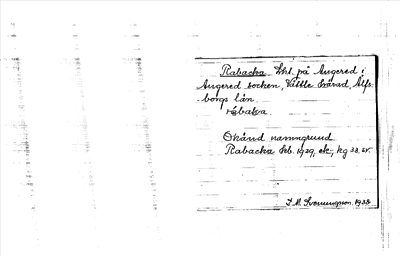 Rabacka Lht. på Angered i
Angered socken, Vättle härad, Älfs-
borgs län.
råbaka.
Okänd namngrund
Rabacka Jeb. 1929, ek, kg 33. sv.
J. M. Svenungson. 1938